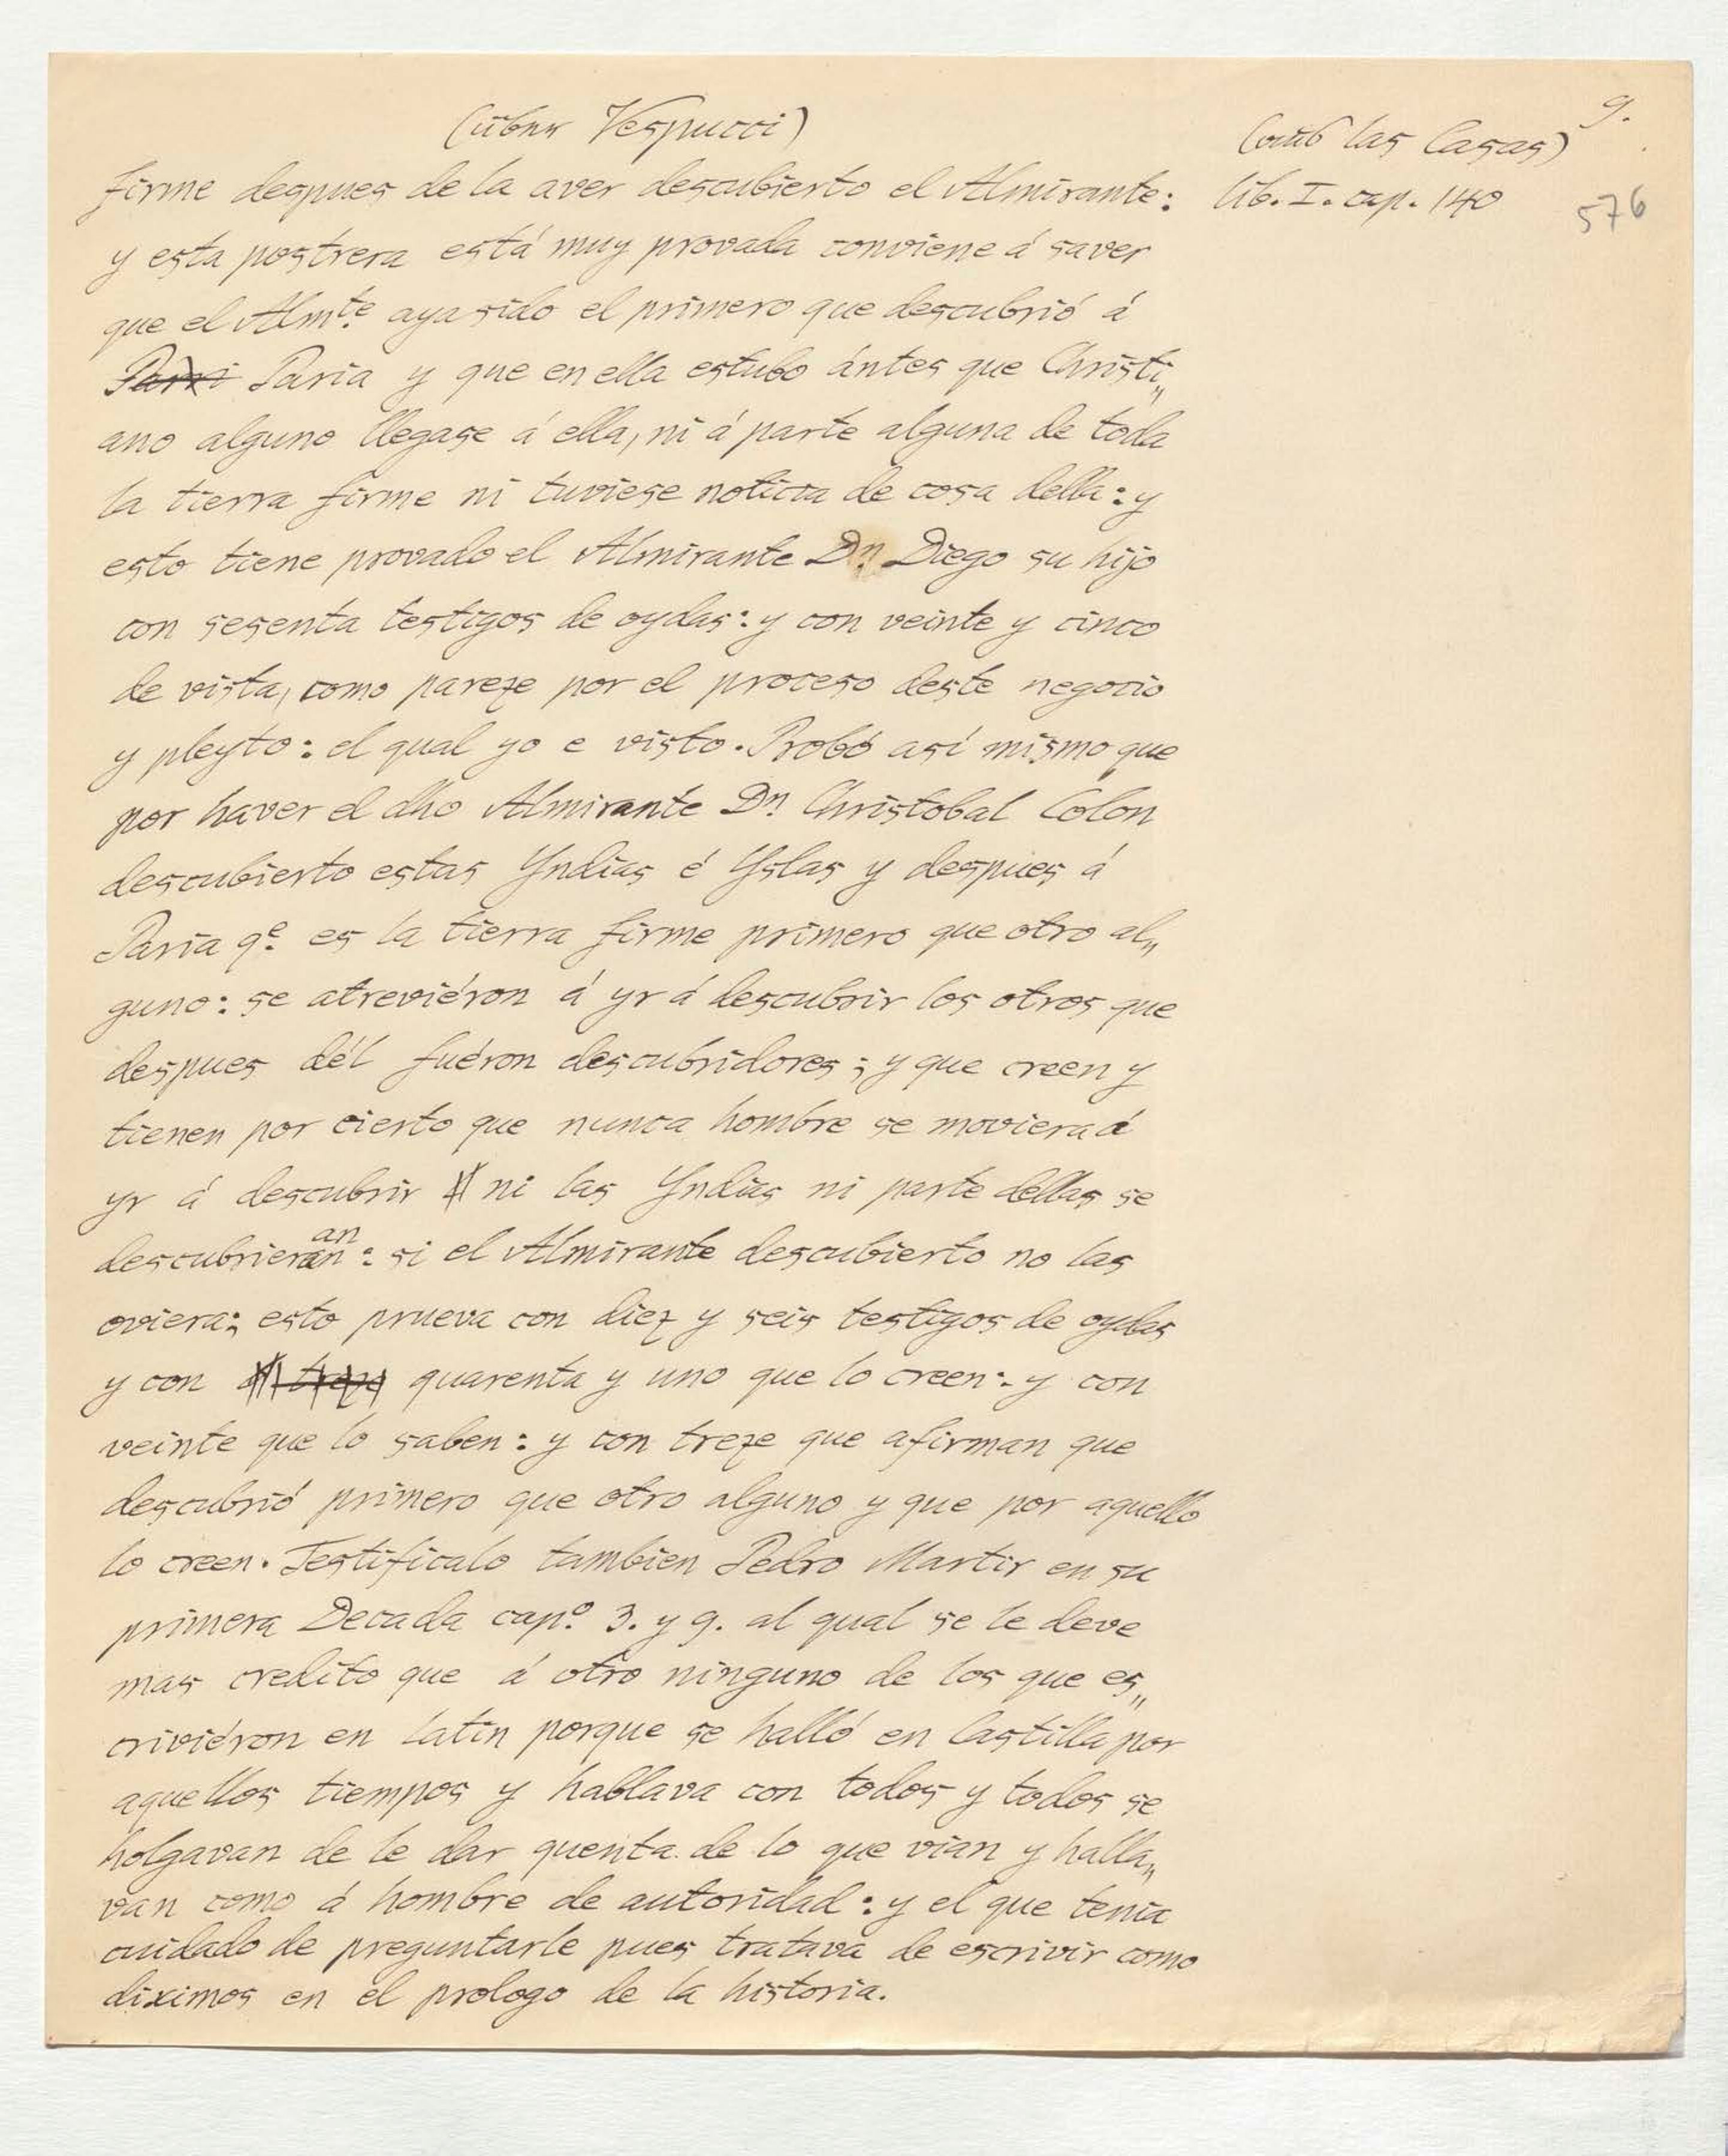 (über Vespucci)
(aus las Casas)
9.
firme despues de la aver descubierto el Almirante:
lib. I. cap. 140
576
y esta postrera está muy provada conviene á saver
que el Almte. aya sido el primero que descubrió á
Paria y que en ella estubo ántes que Christi„
ano alguno llegase á ella, ni á parte alguna de toda
la tierra firme ni tuviese noticia de cosa della: y
esto tiene provado el Almirante Dn. Diego su hijo
con sesenta testigos de oydas: y con veinte y cinco
de vista, como pareze por el proceso deste negocio
y pleyto: el qual yo e visto. Probó así mismo que
por haver el dho Almirante Dn. Christobal Colon
descubierto estas Yndias é Yslas y despues á
Paria qe. es la tierra firme primero que otro al„
guno: se atreviéron á yr á descubrir los otros que
despues dél fuéron descubridores; y que creen y
tienen por cierto que nunca hombre se moviera á
yr á descubrir ni las Yndias ni parte dellas se
descubrieran: si el Almirante descubierto no las
oviera; esto prueva con diez y seis testigos de oydas
y con treze quarenta y uno que lo creen: y con
veinte que lo saben: y con treze que afirman que
descubrió primero que otro alguno y que por aquello
lo creen. Testificalo tambien Pedro Martir en su
primera Decada capo. 3. y 9. al qual se le deve
mas credito que á otro ninguno de los que es„
criviéron en Latin porque se halló en Castilla por
aquellos tiempos y hablava con todos y todos se
holgavan de le dar quenta de lo que vian y halla„
van como á hombre de autoridad: y el que tenia
cuidado de preguntarle pues tratava de escrivir como
diximos en el prologo de la historia.